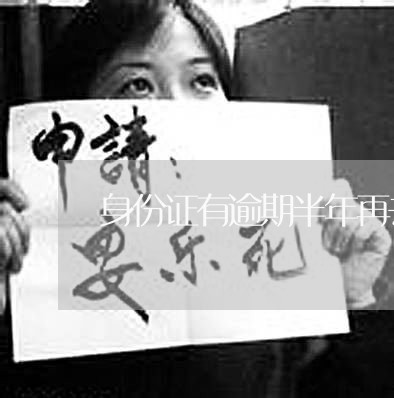 申請：
身份证有逾期半年再
要乐死